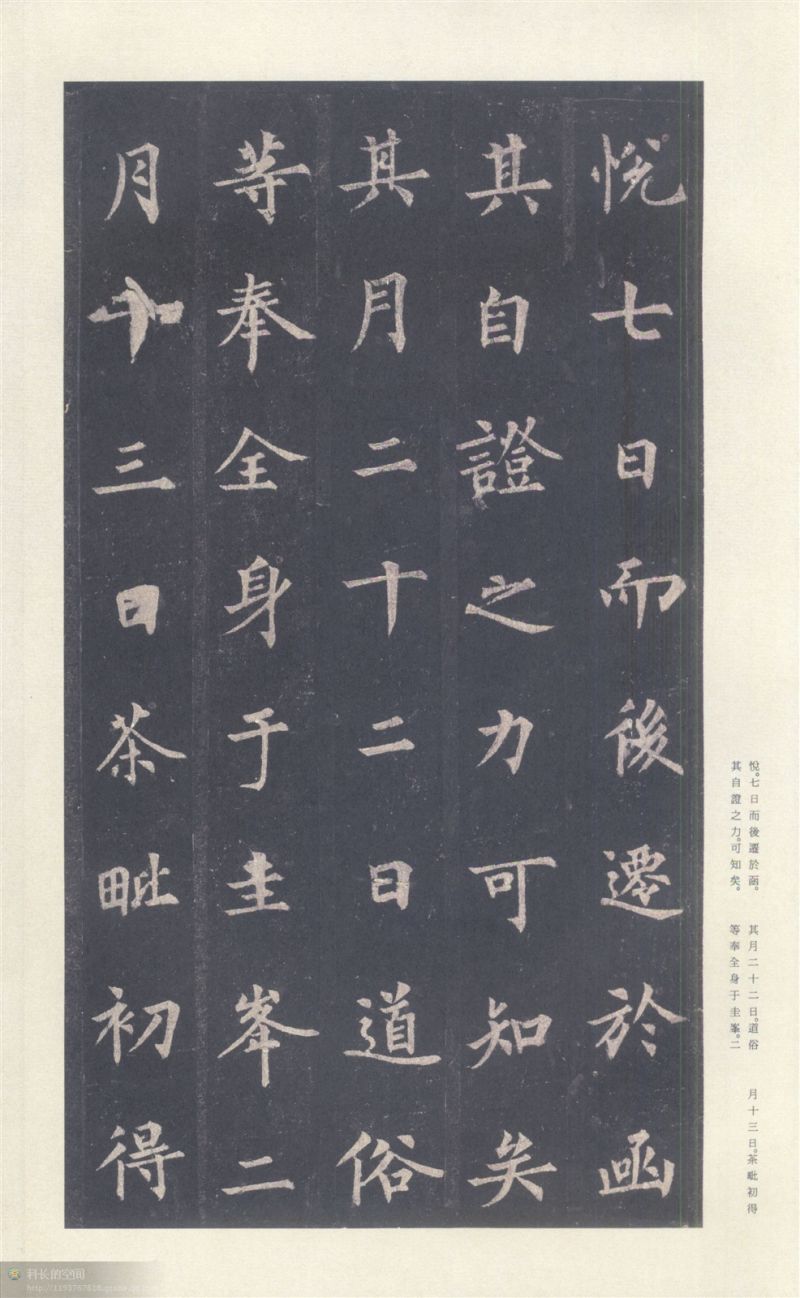 悅七日而後遷於函
其自證之力可知矣
其月二十二日道俗
等奉全身于圭峯二
月十三日茶毗初得
悅。七日而後遷於函。
其自證之力。可知矣。
其月二十二日。道俗
等奉全身于圭峯。二
月十三日。茶毗初得
科长的空间